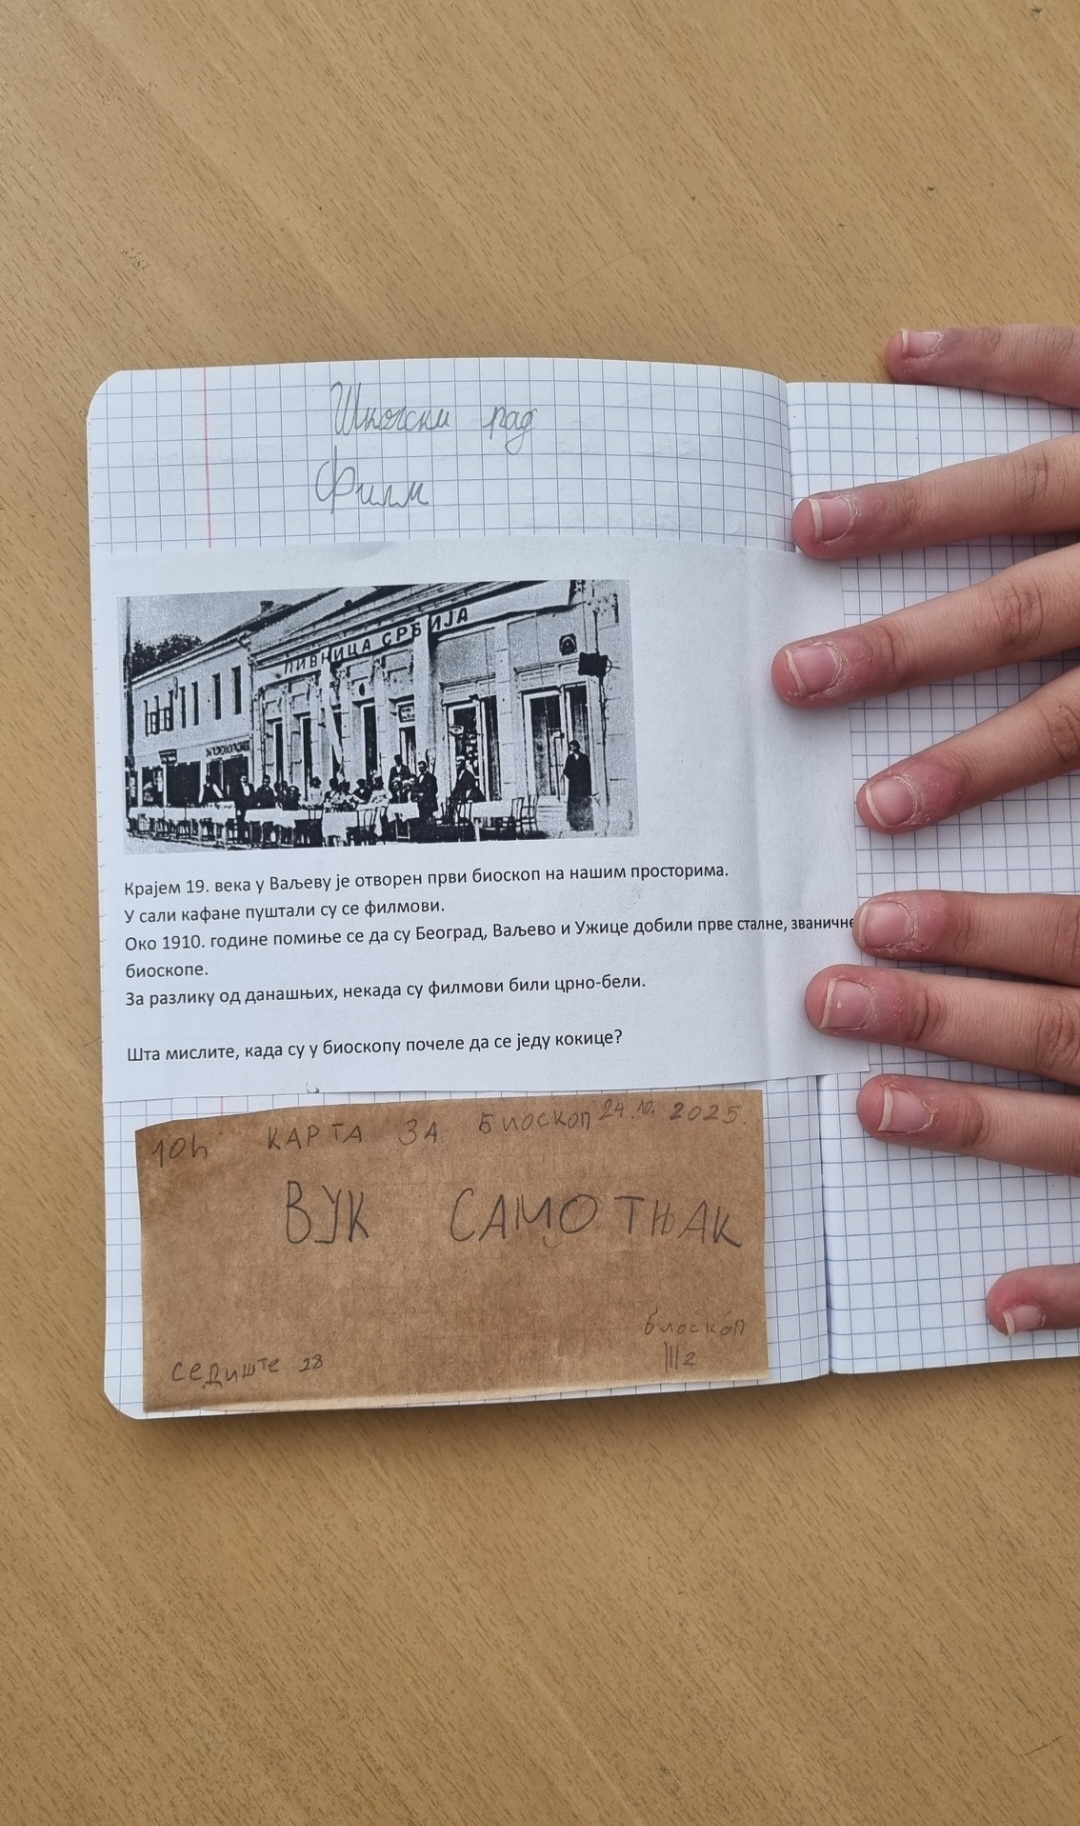 Школски рад
Филм
ПИВНИЦА СРБИЈА
Крајем 19. века у Ваљеву је отворен први биоскоп на нашим просторима.
У сали кафане пуштали су се филмови.
Око 1910. године помиње се да су Београд, Ваљево и Ужице добили прве сталне, званичне
биоскопе.
За разлику од данашњих, некада су филмови били црно-бели.
Шта мислите, када су у биоскопу почеле да се једу кокице?
10h КАРТА ЗА Биоскоп 24.10. 2025.
ВУК САМОТЊАК
биоскоп
III2
седиште 28